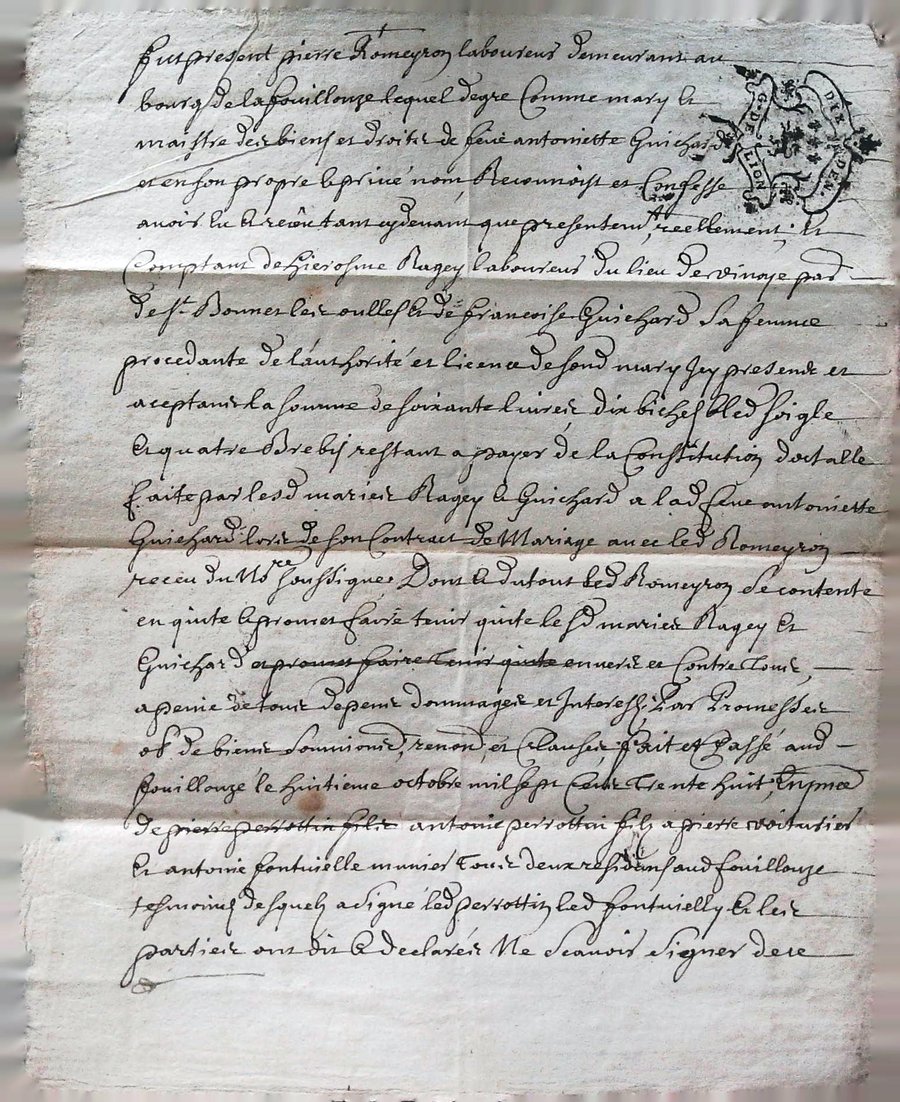 fut present pierre Romeyron laboureur demeurant au
bourg de la fouillouze lequel de gre Comme mary et
maistre des biens et droits de feue antoinette Guichard
et en son propre et privé nom, Reconnoist et Confesse
avoir eu et receu tant cydevant que presentemt, reellement, et
Comptant de hierosme Ragey laboureur du lieu de par
de St Bonnet les oulles et de francoise Guichard sa femme
procedante de l'authorité et licence de sond mary Icy present et
aceptant la somme de soixante livres, dix bichets bled soigle
et quatre Brebis restant a payer de la Constitution doctalle
faite par lesd maries Ragey et Guichard a lad feue antoinette
Guichard lors de son Contract de Mariage avec led Romeyron
receu du Nore soussigné, Dont et du tout led Romeyron se contente
en quitte et promet faire tenir quitte lesd maries Ragey et
Guichard et promet faire tenir quitte envers et Contre Tous,
a peine de tous depens dommages et Interests, Par Promesses
ob de biens soumions, renond, et Clauses, fait et Passé aud
fouillouze le huitieme octobre mil sept Cent Trente huit, En pnce
de pierre perrottin fils antoine perrottin fils a pierre voiturier
Et antoine fontvielle munier Tous deux residents aud fouillouze
tesmoins desquels a signé led perrottin led fontvielle et les
parties ont dit et declarés Ne scavoir signer de ce
G. DE LION
DIX DEN.